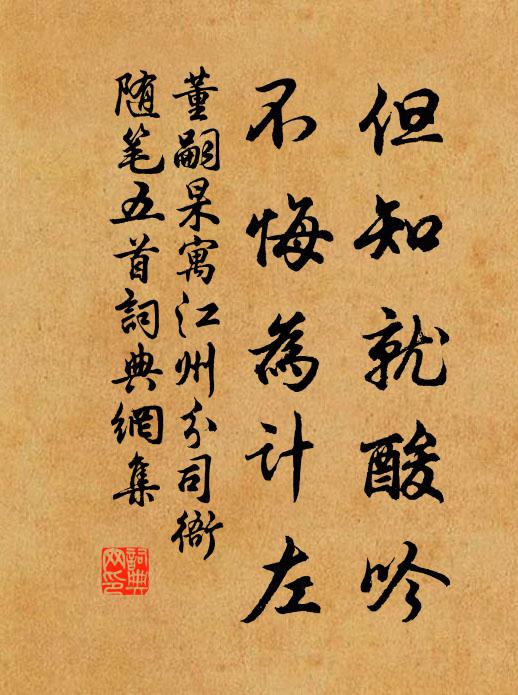 但知就酸吟
不悔為计左
董嗣杲寓江州分司衙
随笔五首詞典網集
詞典網印